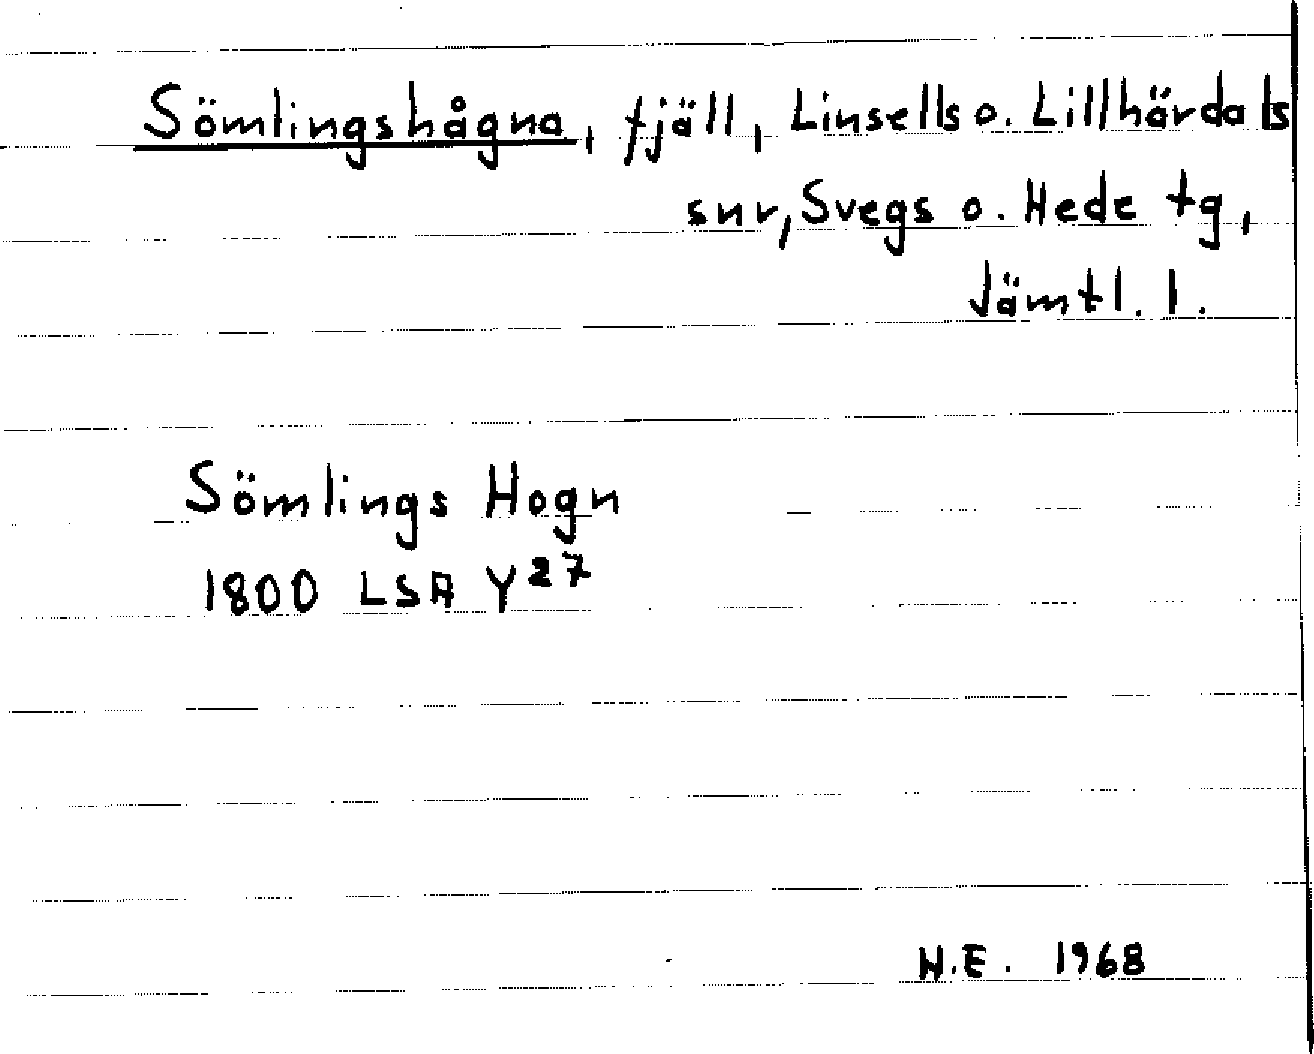 Sömlingshågna, fjäll, Linsells o. Lillhärdals
snr, Svegs o. Hede tg,
Jämtl. l.
Sömlings Hogn
1800 LSA Y27
N.E. 1968